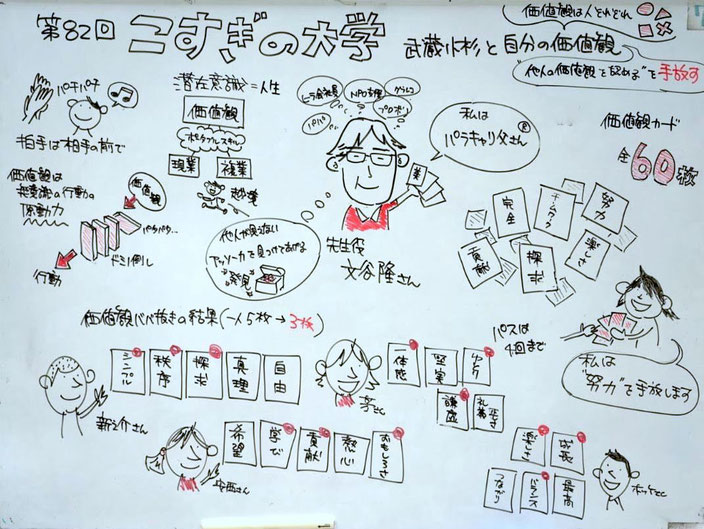 第82回 こすぎの大学
武蔵小杉と自分の価値観
価値観は人それぞれ
"他人の価値観を認める"を手放す
パチパチ
拍手は相手の前で
潜在意識=人生
価値観
ポータブルスキル
現業
複業
ヒラ会社員
NPO支援
グラレコ
パパ
プロボノ
私は
パラキャリ父さん®
先生役
文谷隆さん
価値観カード
全60枚
価値観は
無意識の行動の
原動力
価値観
パタパタ…
ドミノ倒し
行動
他人が見えない
"発見"
努力
完全
楽しさ
貢献
探求
私は
"努力"を手放します
価値観ババ抜きの結果(一人5枚→3枚)
パスは
4回まで
シンプル
秩序
探求
真理
自由
新之介さん
一体感
堅実
ゆとり
謙虚
礼儀正しさ
希望
学び
貢献
熱心
おもしろさ
楽しさ
成長
つながり
バランス
最高